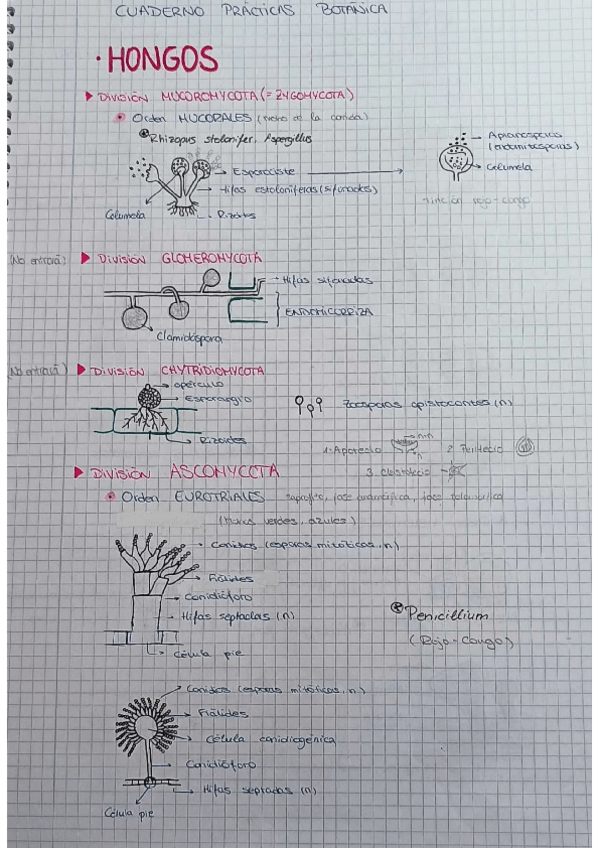 CUADERNO PRÁCTICAS BOTÁNICA
· HONGOS
DIVISIÓN MUCOROMYCOTA (= ZYGOMYCOTA)
Orden MUCORALES (moho de la comida)
Rhizopus stolonifer, Aspergillus
Esporociste
Hifas estoloníferas (sifonadas)
Columela
Rizoides
Aplanosporas
(endomitosporas)
Columela
tinción rojo-congo
(No entrará) DIVISIÓN GLOMEROMYCOTA
Hifas sifonadas
ENDOMICORRIZA
Clamidóspora
(No entrará) DIVISIÓN CHYTRIDIOMYCOTA
opérculo
Esporangio
Rizoides
Zoosporas opistocontas (n)
1. Apotecio 2. Peritecio
3. Cleistotecio
DIVISIÓN ASCOMYCOTA
Orden EUROTRIALES saprófito, fase
(Mohos verdes, azules)
Conidios (esporas mitóticas, n)
Fiálides
Conidióforo
Hifas septadas (n)
Célula pie
Penicillium
(Rojo-Congo)
Conidios (esporas mitóticas, n)
Fiálides
Célula conidiogénica
Conidióforo
Hifas septadas (n)
Célula pie